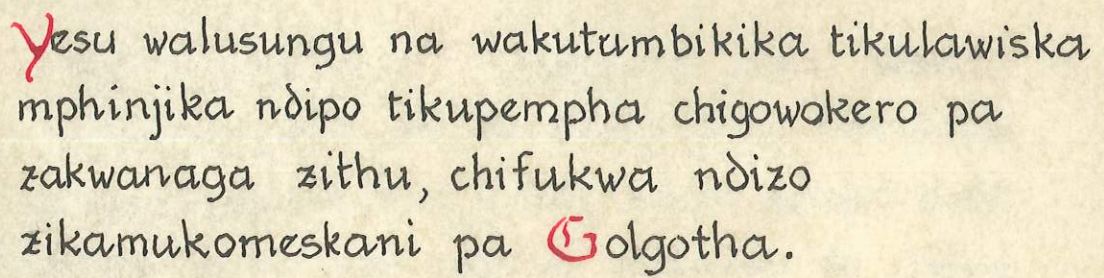 Yesu walusungu na wakutumbikika tikulawiska
mphinjika ndipo tikupempha chigowokero pa
zakwanaga zithu, chifukwa ndizo
zikamukomeskani pa Golgotha.